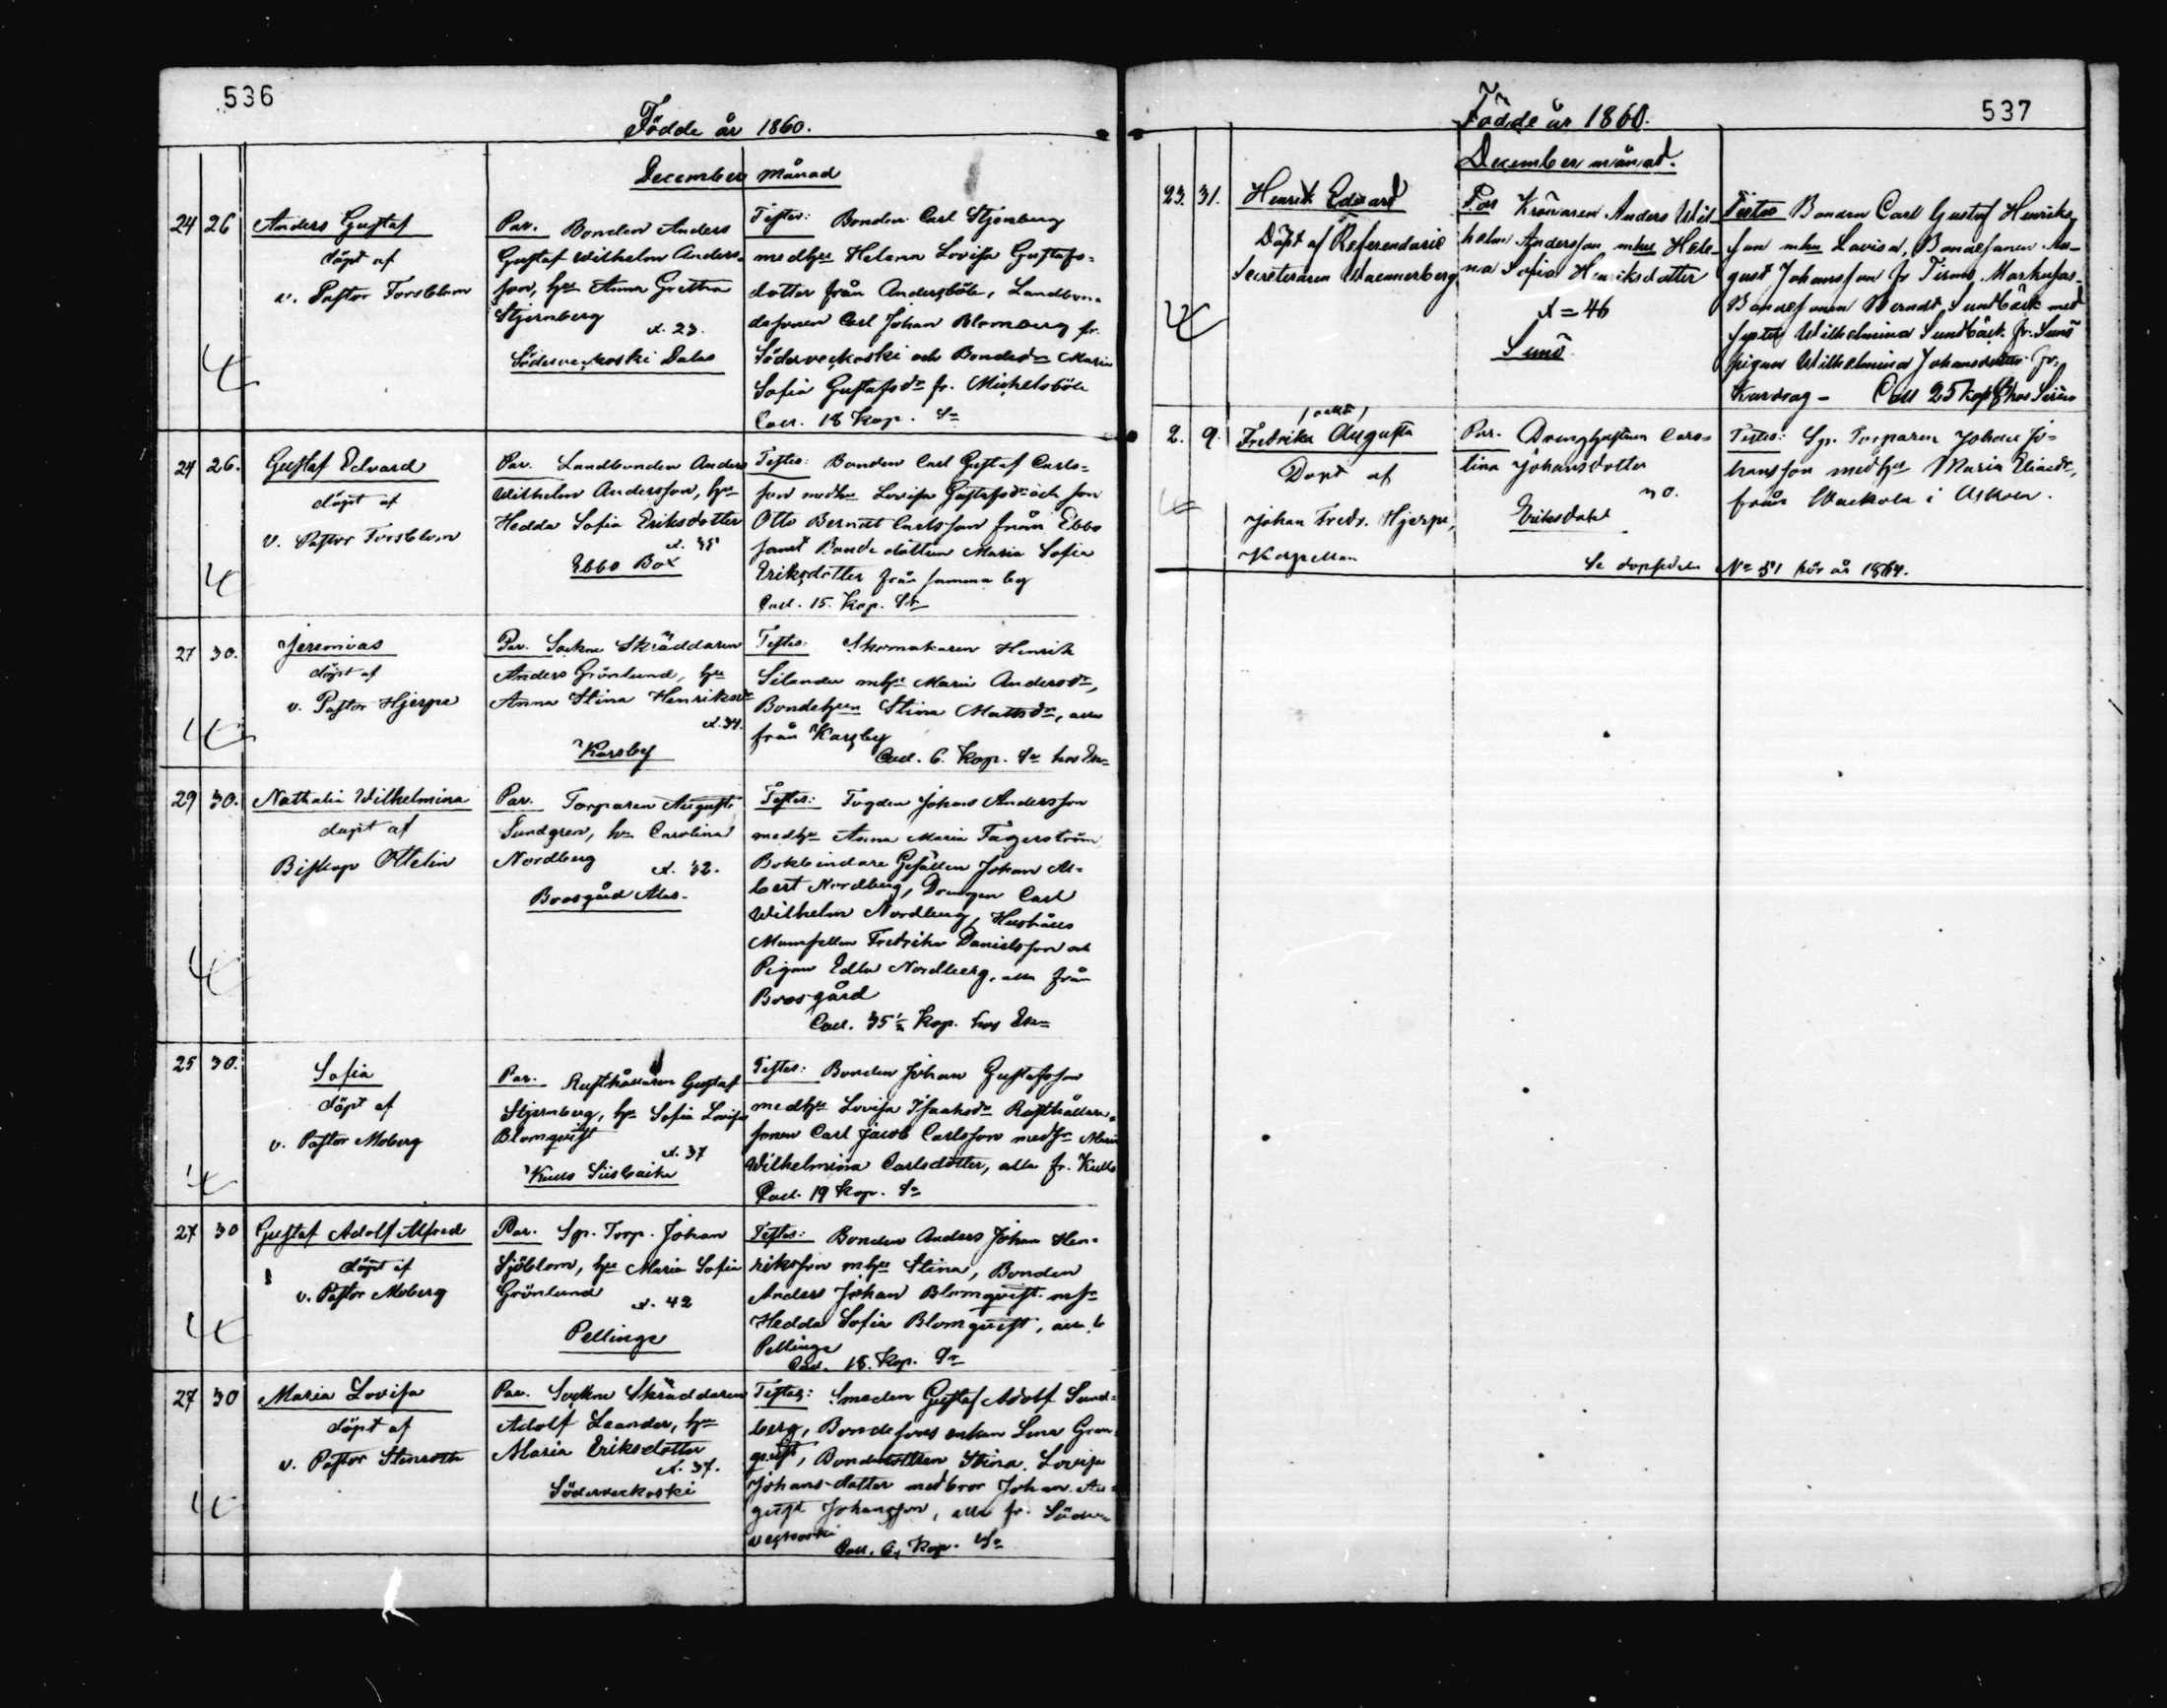 536
Födde år 1860.
December Månad
24 26 Anders Gustaf
döpt af
v. Pastor Forsblom
Par. Bonden Anders
Gustaf Wilhelm Anders-
son, hu Anna Gretha
Stjernberg
æt. 23.
Söderveckoski Dalas
Testes: Bonden Carl Stjernberg
med hu Helena Lovisa Gustafs-
dotter från Andersböle, Landbon-
desonen Carl Johan Blomberg fr.
Söderveckoski och Bonded:r Maria
Sofia Gustafsd:r fr. Mickelsböle
18 Kop. Sr
24 26. Gustaf Edvard
döpt af
v. Pastor Forsblom
Par. Landbonden Anders
Wilhelm Andersson, hu
Hedda Sofia Eriksdotter
æt. 35
Ebbo Box
Testes: Bonden Carl Gustaf Carls-
son med hu Lovisa Gustafsd:r och son
Otto Berndt Carlsson från Ebbo
samt Bonde dottren Maria Sofia
Eriksdotter från samma by
15. Kop. Sr
27 30. Jeremias
döpt af
v. Pastor Hjerpe
Par. Sockne Skräddaren
Anders Grönlund, hu
Anna Stina Henriksd:r
æt. 34.
Karsby
Testes: Skomakaren Henrik
Silander m hu Maria Andersd:r,
Bondehun Stina Mattsd:r, alla
från Karsby
6. Kop. Sr hos
29 30. Nathalia Wilhelmina
döpt af
Biskop Ottelin
Par. Torparen August
Sundgren, hu Carolina
Nordberg
æt. 32.
Boosgård
Testes: Fogden Johan Andersson
med hu Anna Maria Fagerström
Bokbindare Gesällen Johan Al-
bert Nordberg, Drängen Carl
Wilhelm Nordberg, Hushålls
Mamsellen Fredrika Danielsson och
Pigan Edla Nordberg, alla från
Boosgård
35½ Kop. hos
25 30. Sofia
döpt af
v. Pastor Moberg
Par. Rusthållaren Gustaf
Stjernberg, hu Sofia Lovisa
Blomqvist
æt. 37
Kullo Siisbacka
Testes: Bonden Johan Gustafsson
med hu Lovisa Isaksd:r Rusthållare-
sonen Carl Jacob Carlsson med hu Maria
Wilhelmina Carlsdotter, alla fr. Kullo
19 Kop. Sr
27 30 Gustaf Adolf Alfred
döpt af
v. Pastor Moberg
Par. Sp. Torp. Johan
Sjöblom, hu Maria Sofia
Grönlund
æt. 42
Pellinge
Testes: Bonden Anders Johan Hen-
riksson m hu Stina, Bonden
Anders Johan Blomqvist m hu
Hedda Sofia Blomqvist, alla fr
Pellinge
18. Kop. Sr
27 30 Maria Lovisa
döpt af
v. Pastor Stenroth
Par. Sockne Skräddaren
Adolf Leander, hu
Maria Eriksdotter
æt. 37.
Söderveckoski
Testes: Smeden Gustaf Adolf Sund-
berg, Bondesons enkan Lena Gran-
qvist, Bondedottren Stina Lovisa
Johans-dotter med bror Johan Au-
gust Johansson, alla fr. Söder-
veckoski
6, Kop. Sr
537
Födde år 1860.
December månad.
23. 31. Henrik Edvard
Döpt af Referendarie
Secreteraren Wacnnerberg
Par Krönaren Anders Wil-
helm Andersson, m hu Hele-
na Sofia Henriksdotter
æt = 46
Sund
Testes Bonden Carl Gustaf Henriks-
son m hu Lovisa, Bondesonen Au-
gust Johansson fr Tirmo, Markusas.
Bondesonen Berndt Sundbäck med
syster Wilhelmina Sundbäck fr. Sund
pigan Wilhelmina Johansdotter fr.
Kardrag - 25 Kop hos
2. 9. Fredrika Augusta
Döpt af
Johan Fredr. Hjerpe,
Kapellan
Par. Drenghustrun Caro-
lina Johansdotter
30.
Eriksdahl
Testes: Sp. Torparen Johan Jo-
hansson med hu Maria
från Wackola i Askola.
Se dopsedeln No 51 för år 1864.